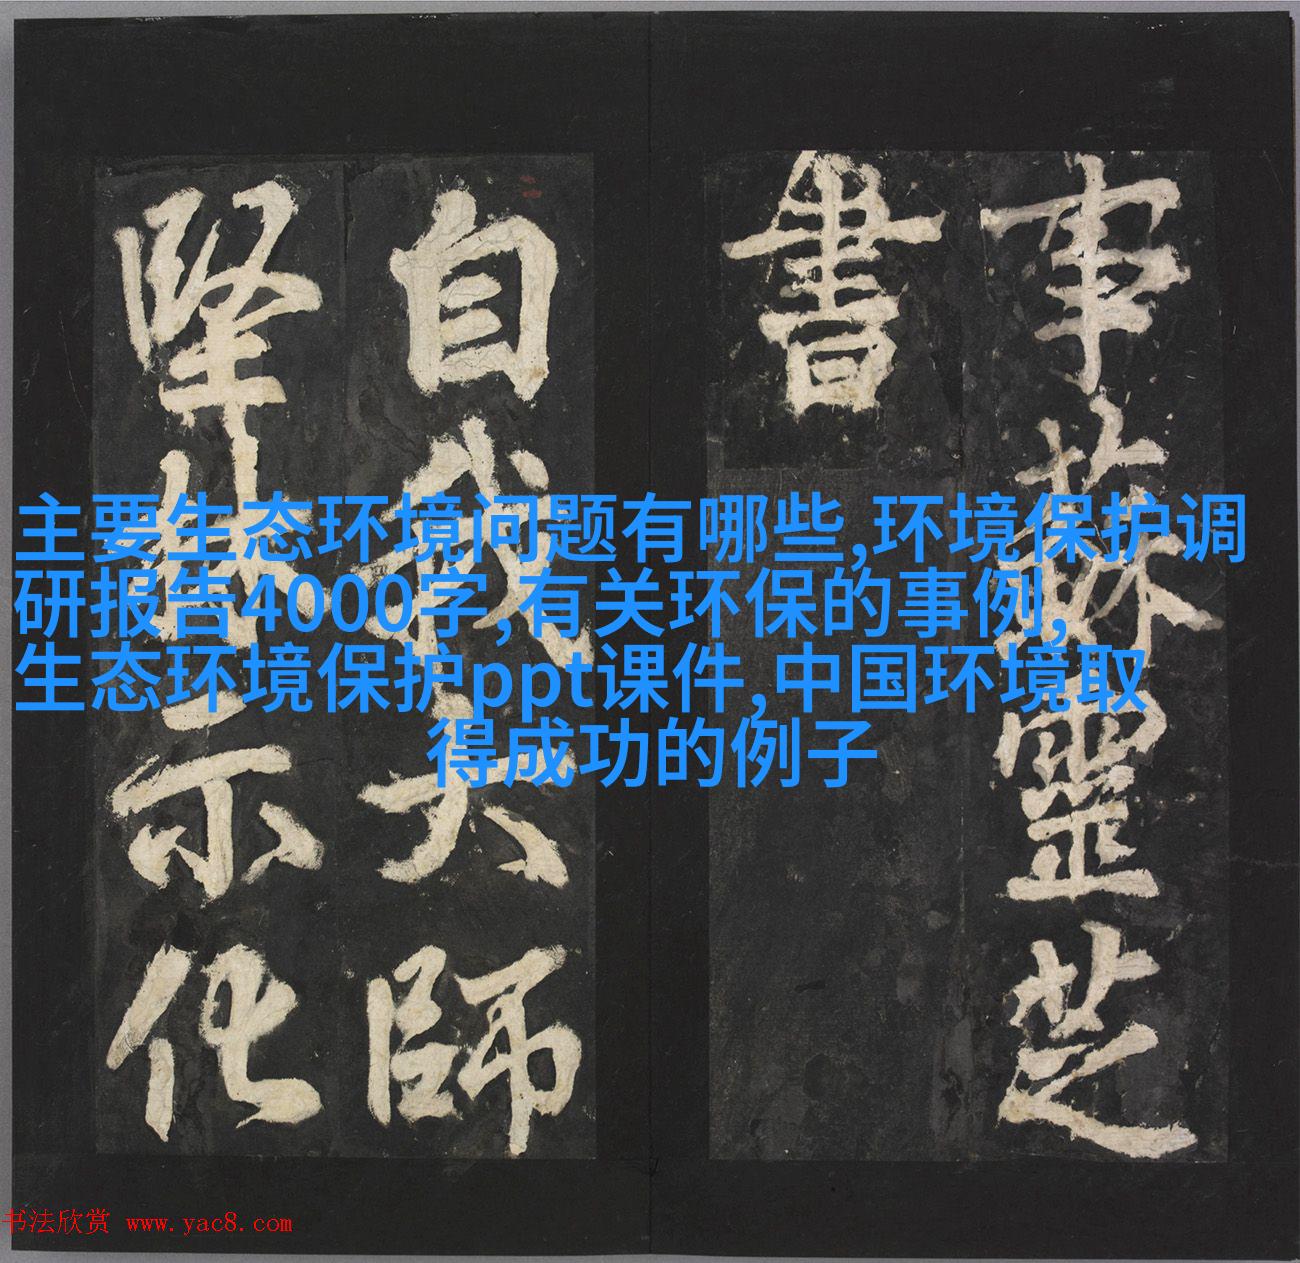 事蘇靈芝
書
自我大師
示化
主要生态环境问题有哪些,环境保护调
研报告4000字,有关环保的事例,
生态环境保护ppt课件,中国环境取
得成功的例子
书法欣赏 www.yac8.com